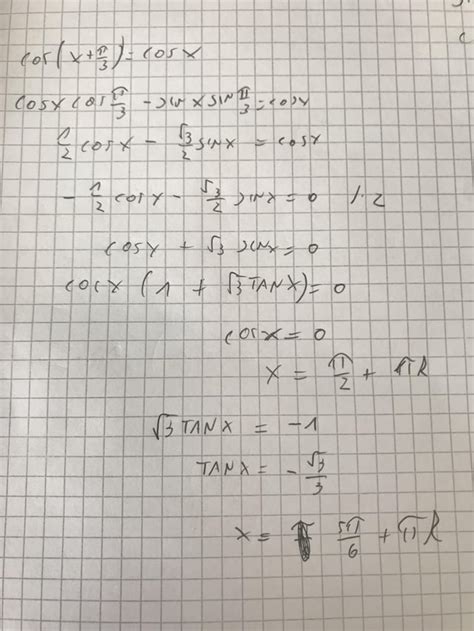 cos(x+π/3)=cosx
cosx cosπ/3 - sinx sinπ/3=cosx
1/2 cosx - √3/2 sinx = cosx
-1/2 cosx - √3/2 sinx=0 /·2
cosx + √3 sinx=0
cosx (1 + √3TANX)=0
cosx=0
x = π/2 + πk
√3TANX = -1
TANX= -√3/3
x= 5π/6 +πk